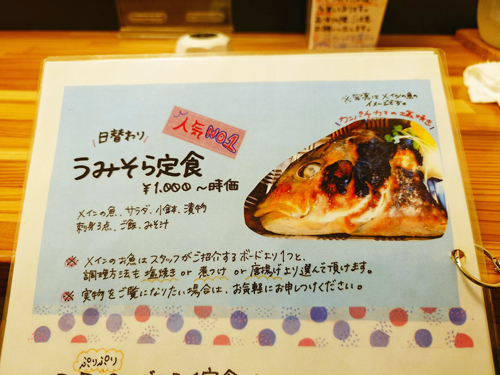 ※写真はメインの魚の
イメージです。
カンパチカマの塩焼き
人気NO.1
日替わり
うみそら定食
¥1,000～時価
メインの魚、サラダ、小鉢、漬物
刺身3点、ご飯、みそ汁
※メインのお魚はスタッフがご紹介するボードより1つと、
調理方法も塩焼き or 煮つけ or 唐揚げより選んで頂けます。
※実物をご覧になりたい場合は、お気軽にお申しつけください。
ぷりぷり